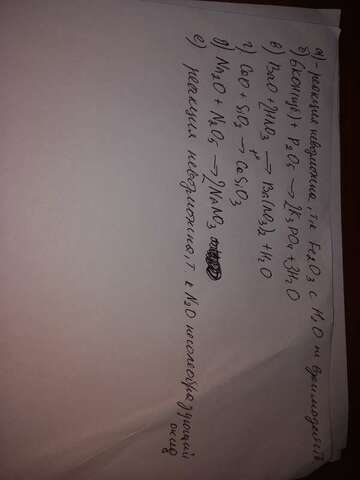 а) - реакция невозможна, т.к Fe2O3 с H2O не
б) 6KOH(изб) + P2O5 → 2K3PO4 + 3H2O
в) BaO + 2HNO3 → Ba(NO3)2 + H2O
г) CaO + SiO2 t° → CaSiO3
д) Na2O + N2O5 → 2NaNO3
е) реакция невозможна, т. к N2O несолеобразующий
оксид